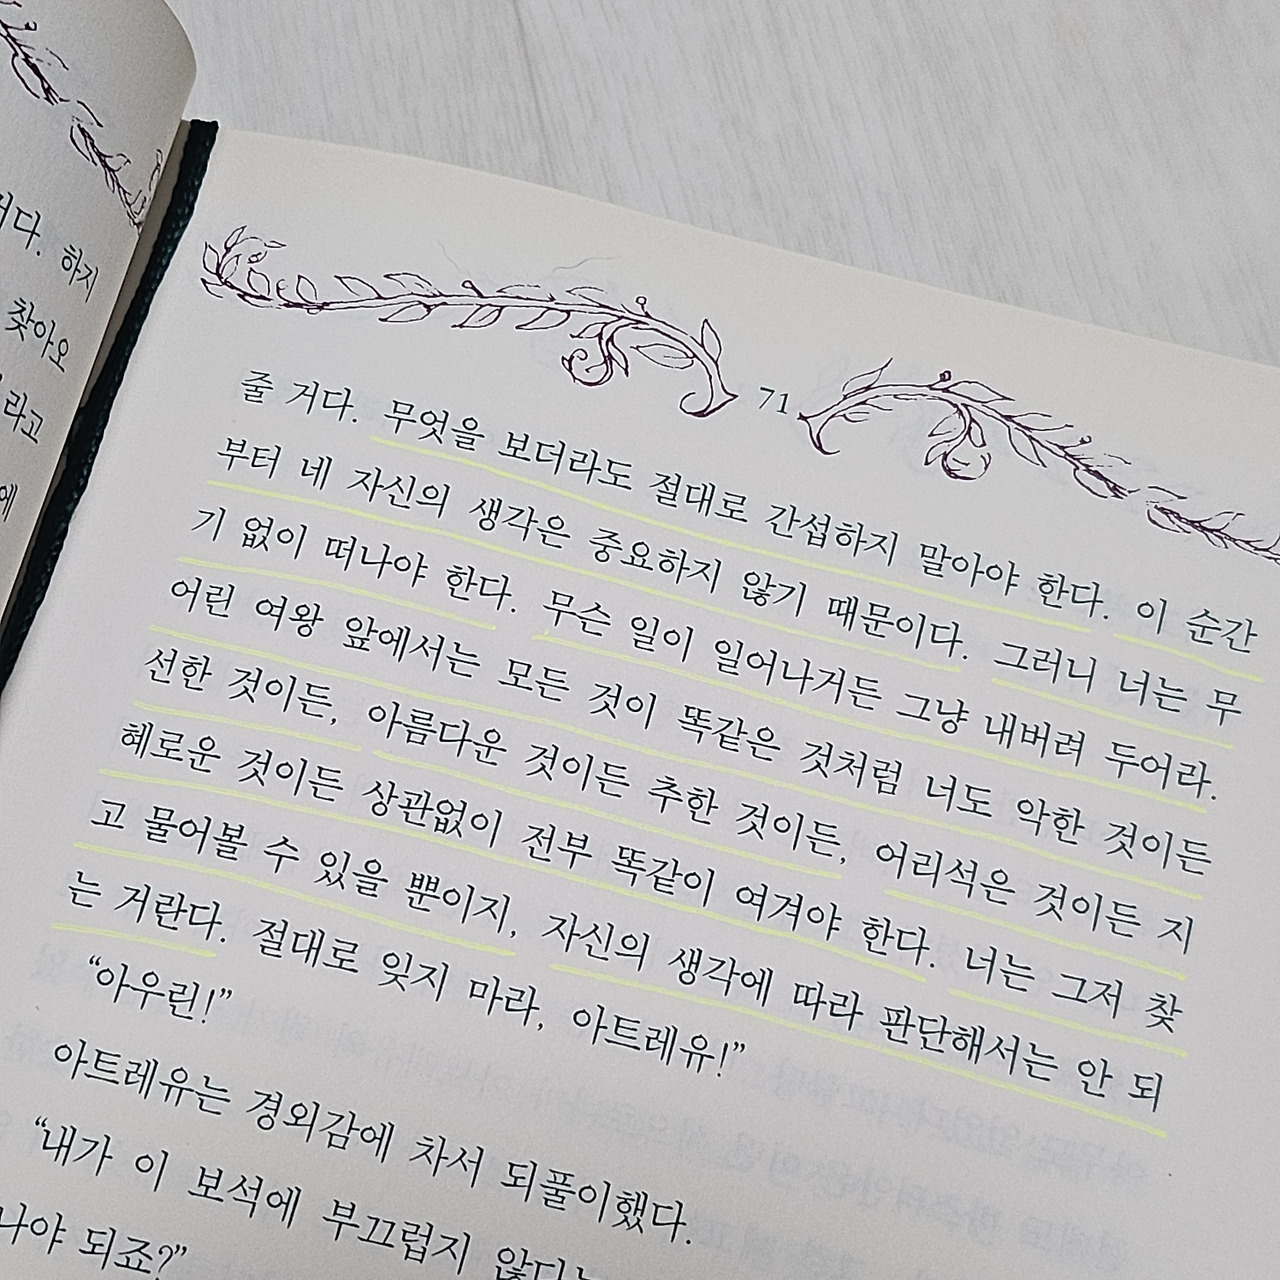 거다. 하지
찾아오
라고
에
71
줄 거다. 무엇을 보더라도 절대로 간섭하지 말아야 한다. 이 순간
부터 네 자신의 생각은 중요하지 않기 때문이다. 그러니 너는 무
기 없이 떠나야 한다. 무슨 일이 일어나거든 그냥 내버려 두어라.
어린 여왕 앞에서는 모든 것이 똑같은 것처럼 너도 악한 것이든
선한 것이든, 아름다운 것이든 추한 것이든, 어리석은 것이든 지
혜로운 것이든 상관없이 전부 똑같이 여겨야 한다. 너는 그저 찾
고 물어볼 수 있을 뿐이지, 자신의 생각에 따라 판단해서는 안 되
는 거란다. 절대로 잊지 마라, 아트레유!”
“아우린!”
아트레유는 경외감에 차서 되풀이했다.
“내가 이 보석에 부끄럽지 않다는
나야 되죠?”